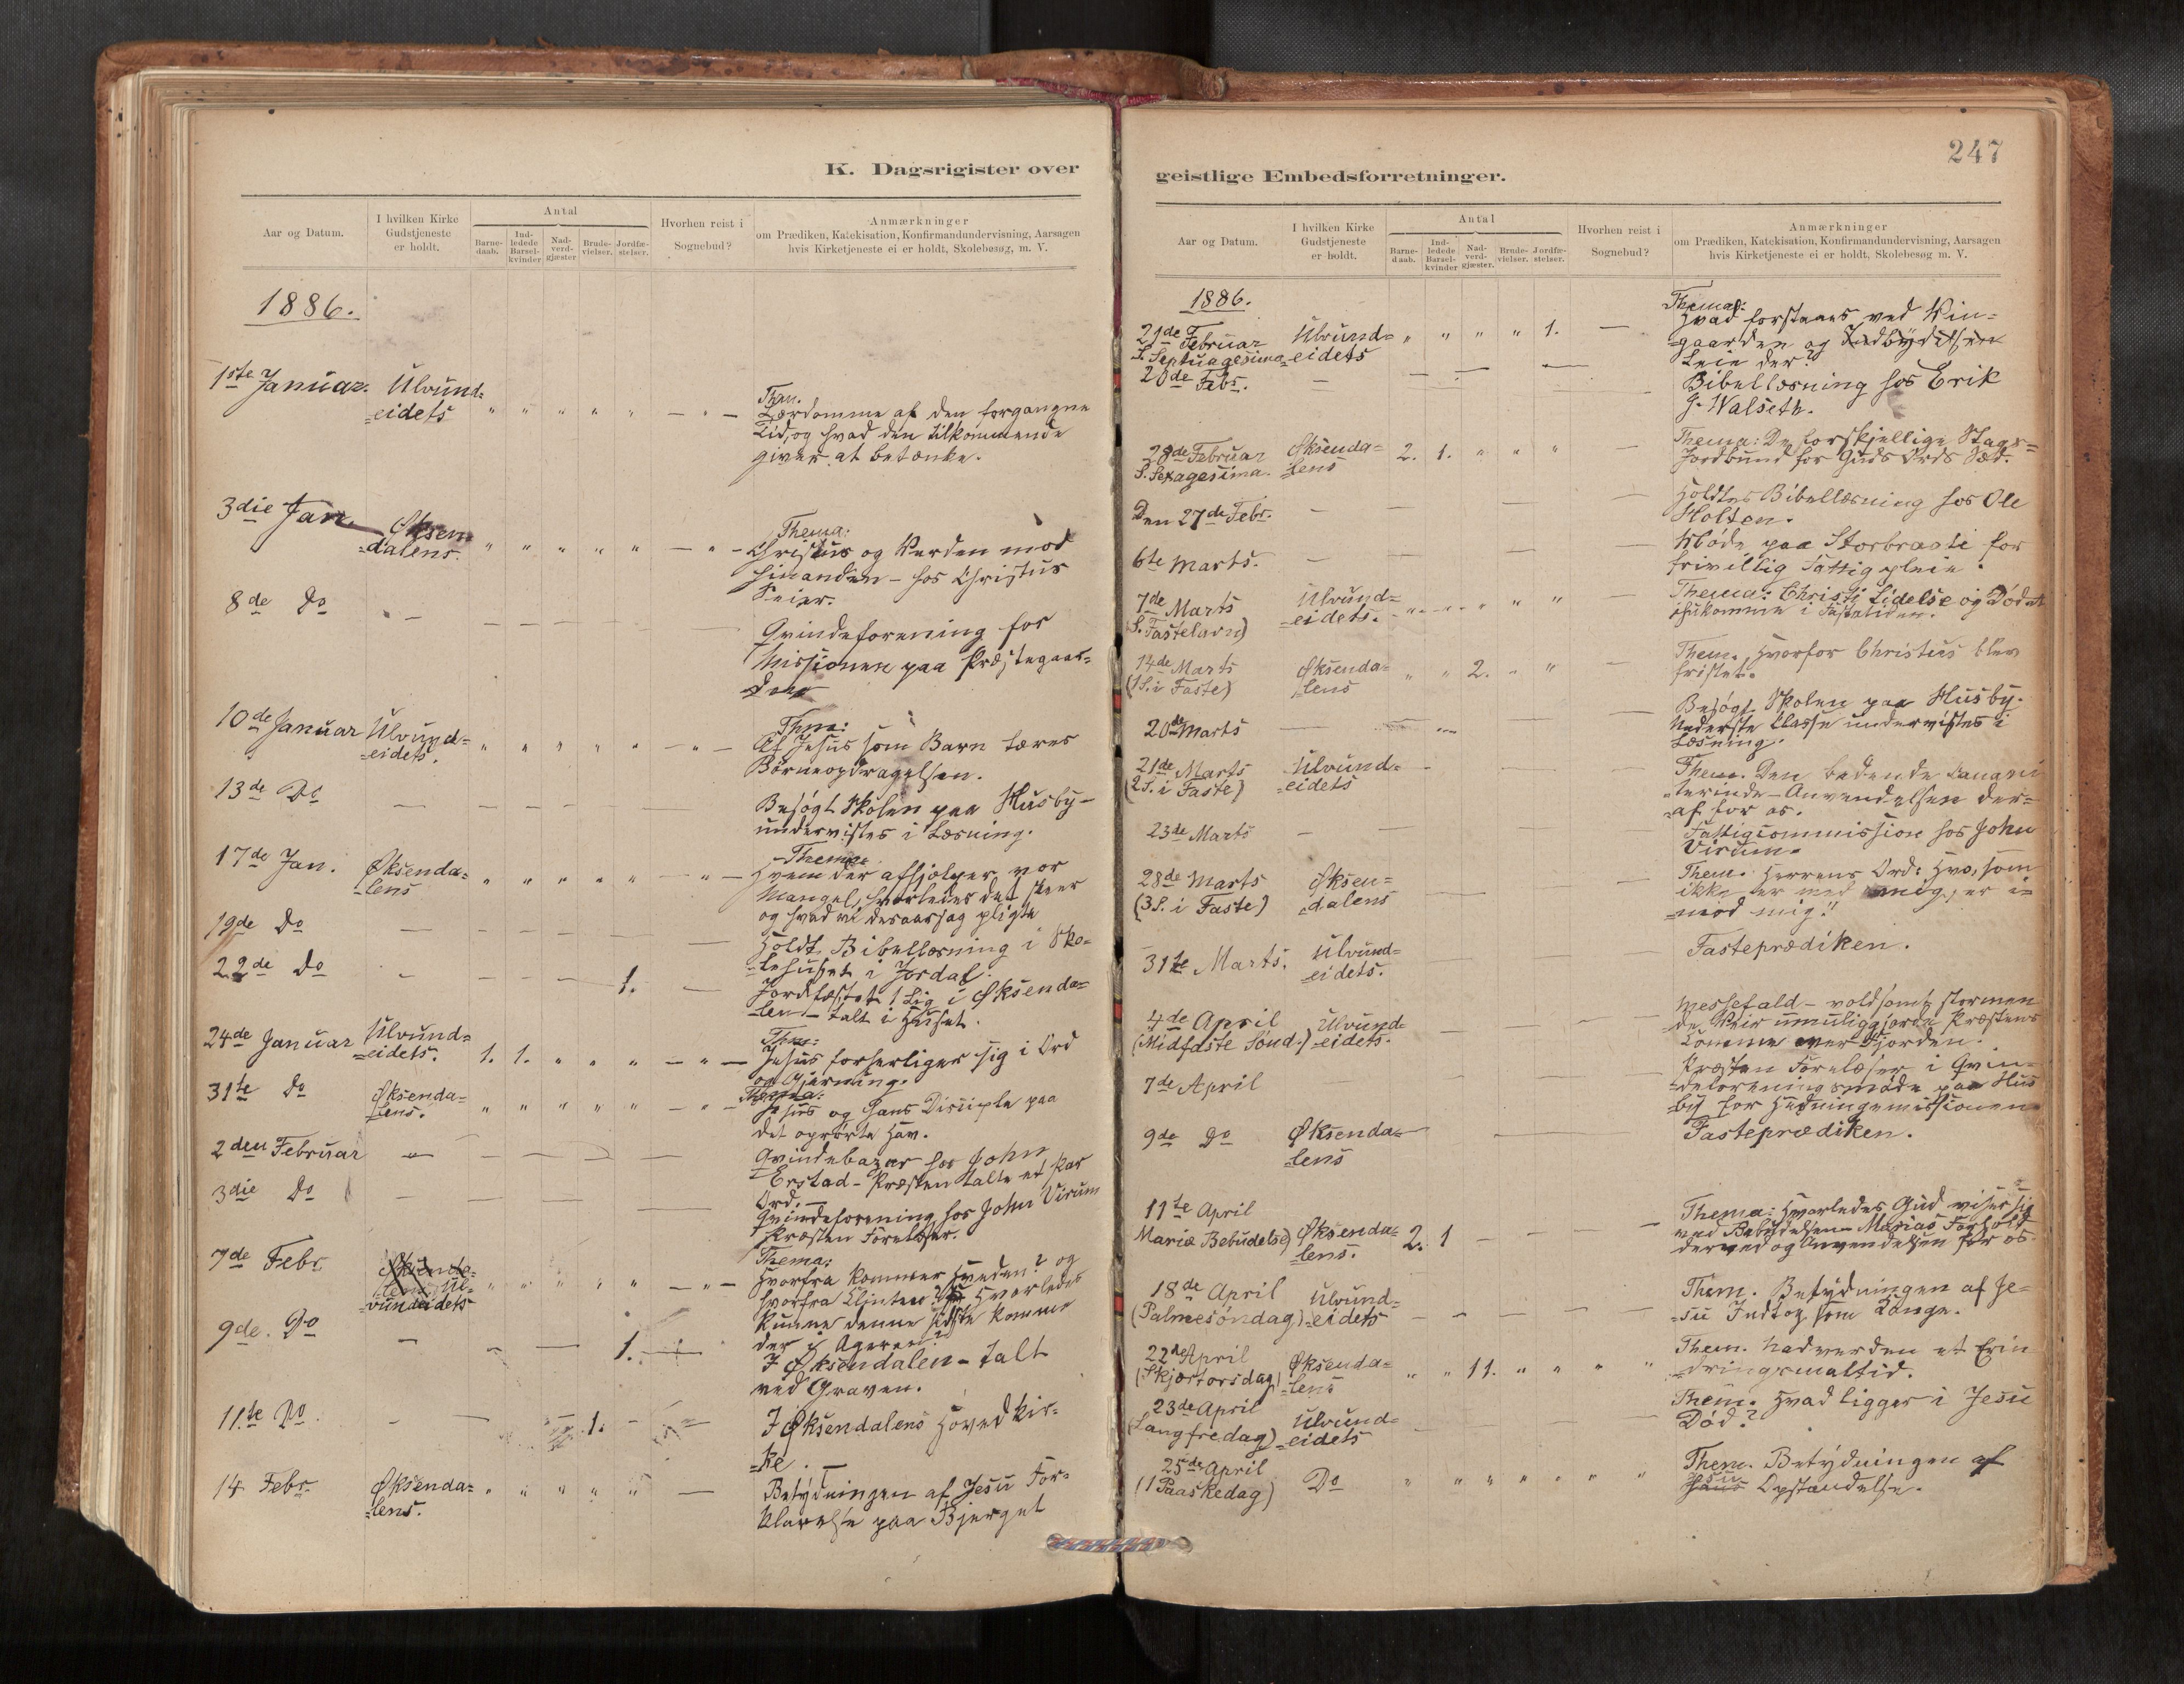 K. Dagsrigister over
Aar og Datum.
I hvilken Kirke
Gudstjeneste
er holdt.
Antal
Barne-
daab.
Ind-
ledede
Barsel-
kvinder
Nad-
verd-
gjæster
Brude-
vielser.
Jordfæ-
stelser.
Hvorhen reist i
Sognebud?
Anmærkninger
om Prædiken, Katekisation, Konfirmandundervisning, Aarsagen
hvis Kirketjeneste ei er holdt, Skolebesøg, m. V.
1886.
1ste Januar. Ulvund=
=eidets " " " " " — " —
Them.
Lærdomme af den forgangne
Tid, og hvad den tilkommende
giver at betænke.
3die Jan. Øksen=
=dalens. " " " " " — " —
Thema:
Christus og Verden mod
hinanden – hos Christus
Seier.
8de Do — — — — — —
Qvindeforening for
Missionen paa Præstegaar=
den
10de Januar Ulvund=
=eidets. " " " " " — " —
Them:
Af Jesus som Barn læres
Børneopdragelsen.
13de Do — — — — —
Besøgt Skolen paa Husby –
undervistes i Læsning.
17de Jan. Øksenda=
=lens " " " " " — " —
Thema:
Hvem der afhjælper vor
Mangel, hvorledes det skeer
og hvad vi desaarsag pligte
19de Do — — — — — —
Holdt Bibellæsning i Sko=
=lehuset i Jordal.
22de Do — — — — 1. —
Jordfæstet 1 Lig i Øksenda=
=len – talt i Huset.
24de Januar Ulvund=
=eidets. 1. 1. " " " — " —
Them:
Jesus forherliger sig i Ord
og Gjerning.
31te Do Øksenda=
=lens. " " " " " — " —
Thema:
Jesus og hans Disciple paa
det oprørte Hav.
2den Februar — — — — —
Qvindebazar hos John
Erstad – Præsten talte et Par
Ord. —
3die Do — — — —
Qvindeforening hos John Virum
Præsten Forelæser.
7de Febr. Øksenda=
=lens Ul=
=vundeidets " " " " " — " —
Thema:
Hvorfra kommer Hveden? og
hvorfra Klinten? Hvorledes
kunne denne sidste komme
der i Ageren?
9de. Do — — — 1. —
I Øksendalen – talt
ved Graven.
11te Do. — — — 1. — —
I Øksendalens Hovedkir=
=ke. —
14 Febr. Øksenda=
=lens. " " " " " —
Betydningen af Jesu For=
klarelse paa Bjerget
247
geistlige Embedsforretninger.
Aar og Datum.
I hvilken Kirke
Gudstjeneste
er holdt.
Antal
Barne-
daab.
Ind-
ledede
Barsel-
kvinder
Nad-
verd-
gjæster.
Brude-
vielser.
Jordfæ-
stelser.
Hvorhen reist i
Sognebud?
Anmærkninger
om Prædiken, Katekisation, Konfirmandundervisning, Aarsagen
hvis Kirketjeneste ei er holdt, Skolebesøg m. V.
1886.
21de Februar Ulvund=
S. Septuagesima =eidets " " " " 1. —
Thema:
Hvad forstaaes ved Vin=
gaarden og Indbydelsen
Leie der?
20de Febr. — — — —
Bibellæsning hos Erik
J. Walseth.
28de Februar Øksenda=
S. Sexagesima. =lens 2. 1. " " " —
Thema: De forskjellige Slags=
Jordbund for Guds Ords Sæd.
Den 27de Febr. — — — — —
Holdtes Bibellæsning hos Ole
Holten.
6te Marts. — — — —
Møde paa Storbraate for
frivillig Fattigpleie.
7de Marts Ulvund=
(S. Fastelavn) =eidets. " " " " " —
Thema: Christi Lidelse og Død
ihukomme i Fastetiden.
14de Marts Øksenda=
(1 S. i Faste) =lens " " 2. " " —
Them. Hvorfor Christus blev
fristet.
20de Marts — — — —
Besøgt Skolen paa Husby.
Nederste Classe undervistes i
Læsning.
21de Marts Ulvund=
(2 S. i Faste) =eidets — — — —
Them. Den bedende Canani
=terinde – Anvendelsen der=
=af for os.
23de Marts — — — —
Fattigcommission hos John
Virum.
28de Marts Øksen=
(3 S. i Faste) =dalens — — —
Them. Herrens Ord: Hvo, som
ikke er med mig, er i=
=mod mig!"
31te Marts. Ulvund=
=eidets. — — —
Fasteprædiken.
4de April Ulvund=
(Midfaste Sønd.) =eidets. — — — —
Messefald – voldsomt stormen
de Veir umuliggjorde Præstens
Komme over Fjorden.
7de April — — —
Præsten Forelæser i Qvin=
=deforeningsmøde paa Hus
by for Hedningemissionen
9de Do Øksenda=
=lens — — —
Fasteprædiken.
11te April
Mariæ Bebudelse) Øksenda=
=lens. 2. 1 — — — —
Thema: Hvorledes Gud viser sig
ved Bebudelsen – Marias Forhold
derved og Anvendelsen for os.
18de April Ulvund=
(Palmesøndag) =eidets — — — —
Them. Betydningen af Je=
=su Indtog som Konge.
22de April Øksenda=
(Skjærtorsdag) =lens " " 11. " " " "
Them. Nadverden et Erin
=dringsmaltid.
23de April Ulvund=
(Langfredag) =eidets — — —
Them. Hvad ligger i Jesu
Død?
25de April
(1 Paaskedag) Do " " " " " " "
Them. Betydningen af
Jesu
hans Opstandelse.